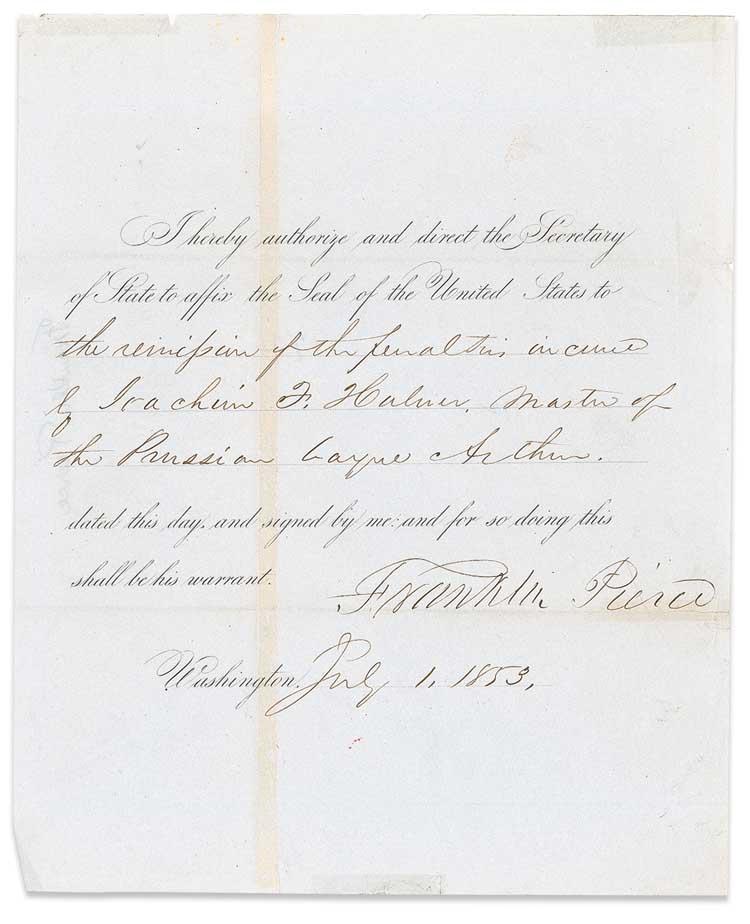 I hereby authorize and direct the Secretary
of State to affix the Seal of the United States to
the remission of the penalties incurred
by Joachim F. Hulner, Master of
the Prussian Arthur.
dated this day, and signed by me: and for so doing this
shall be his warrant.
Franklin Pierce
Washington, July 1, 1853,